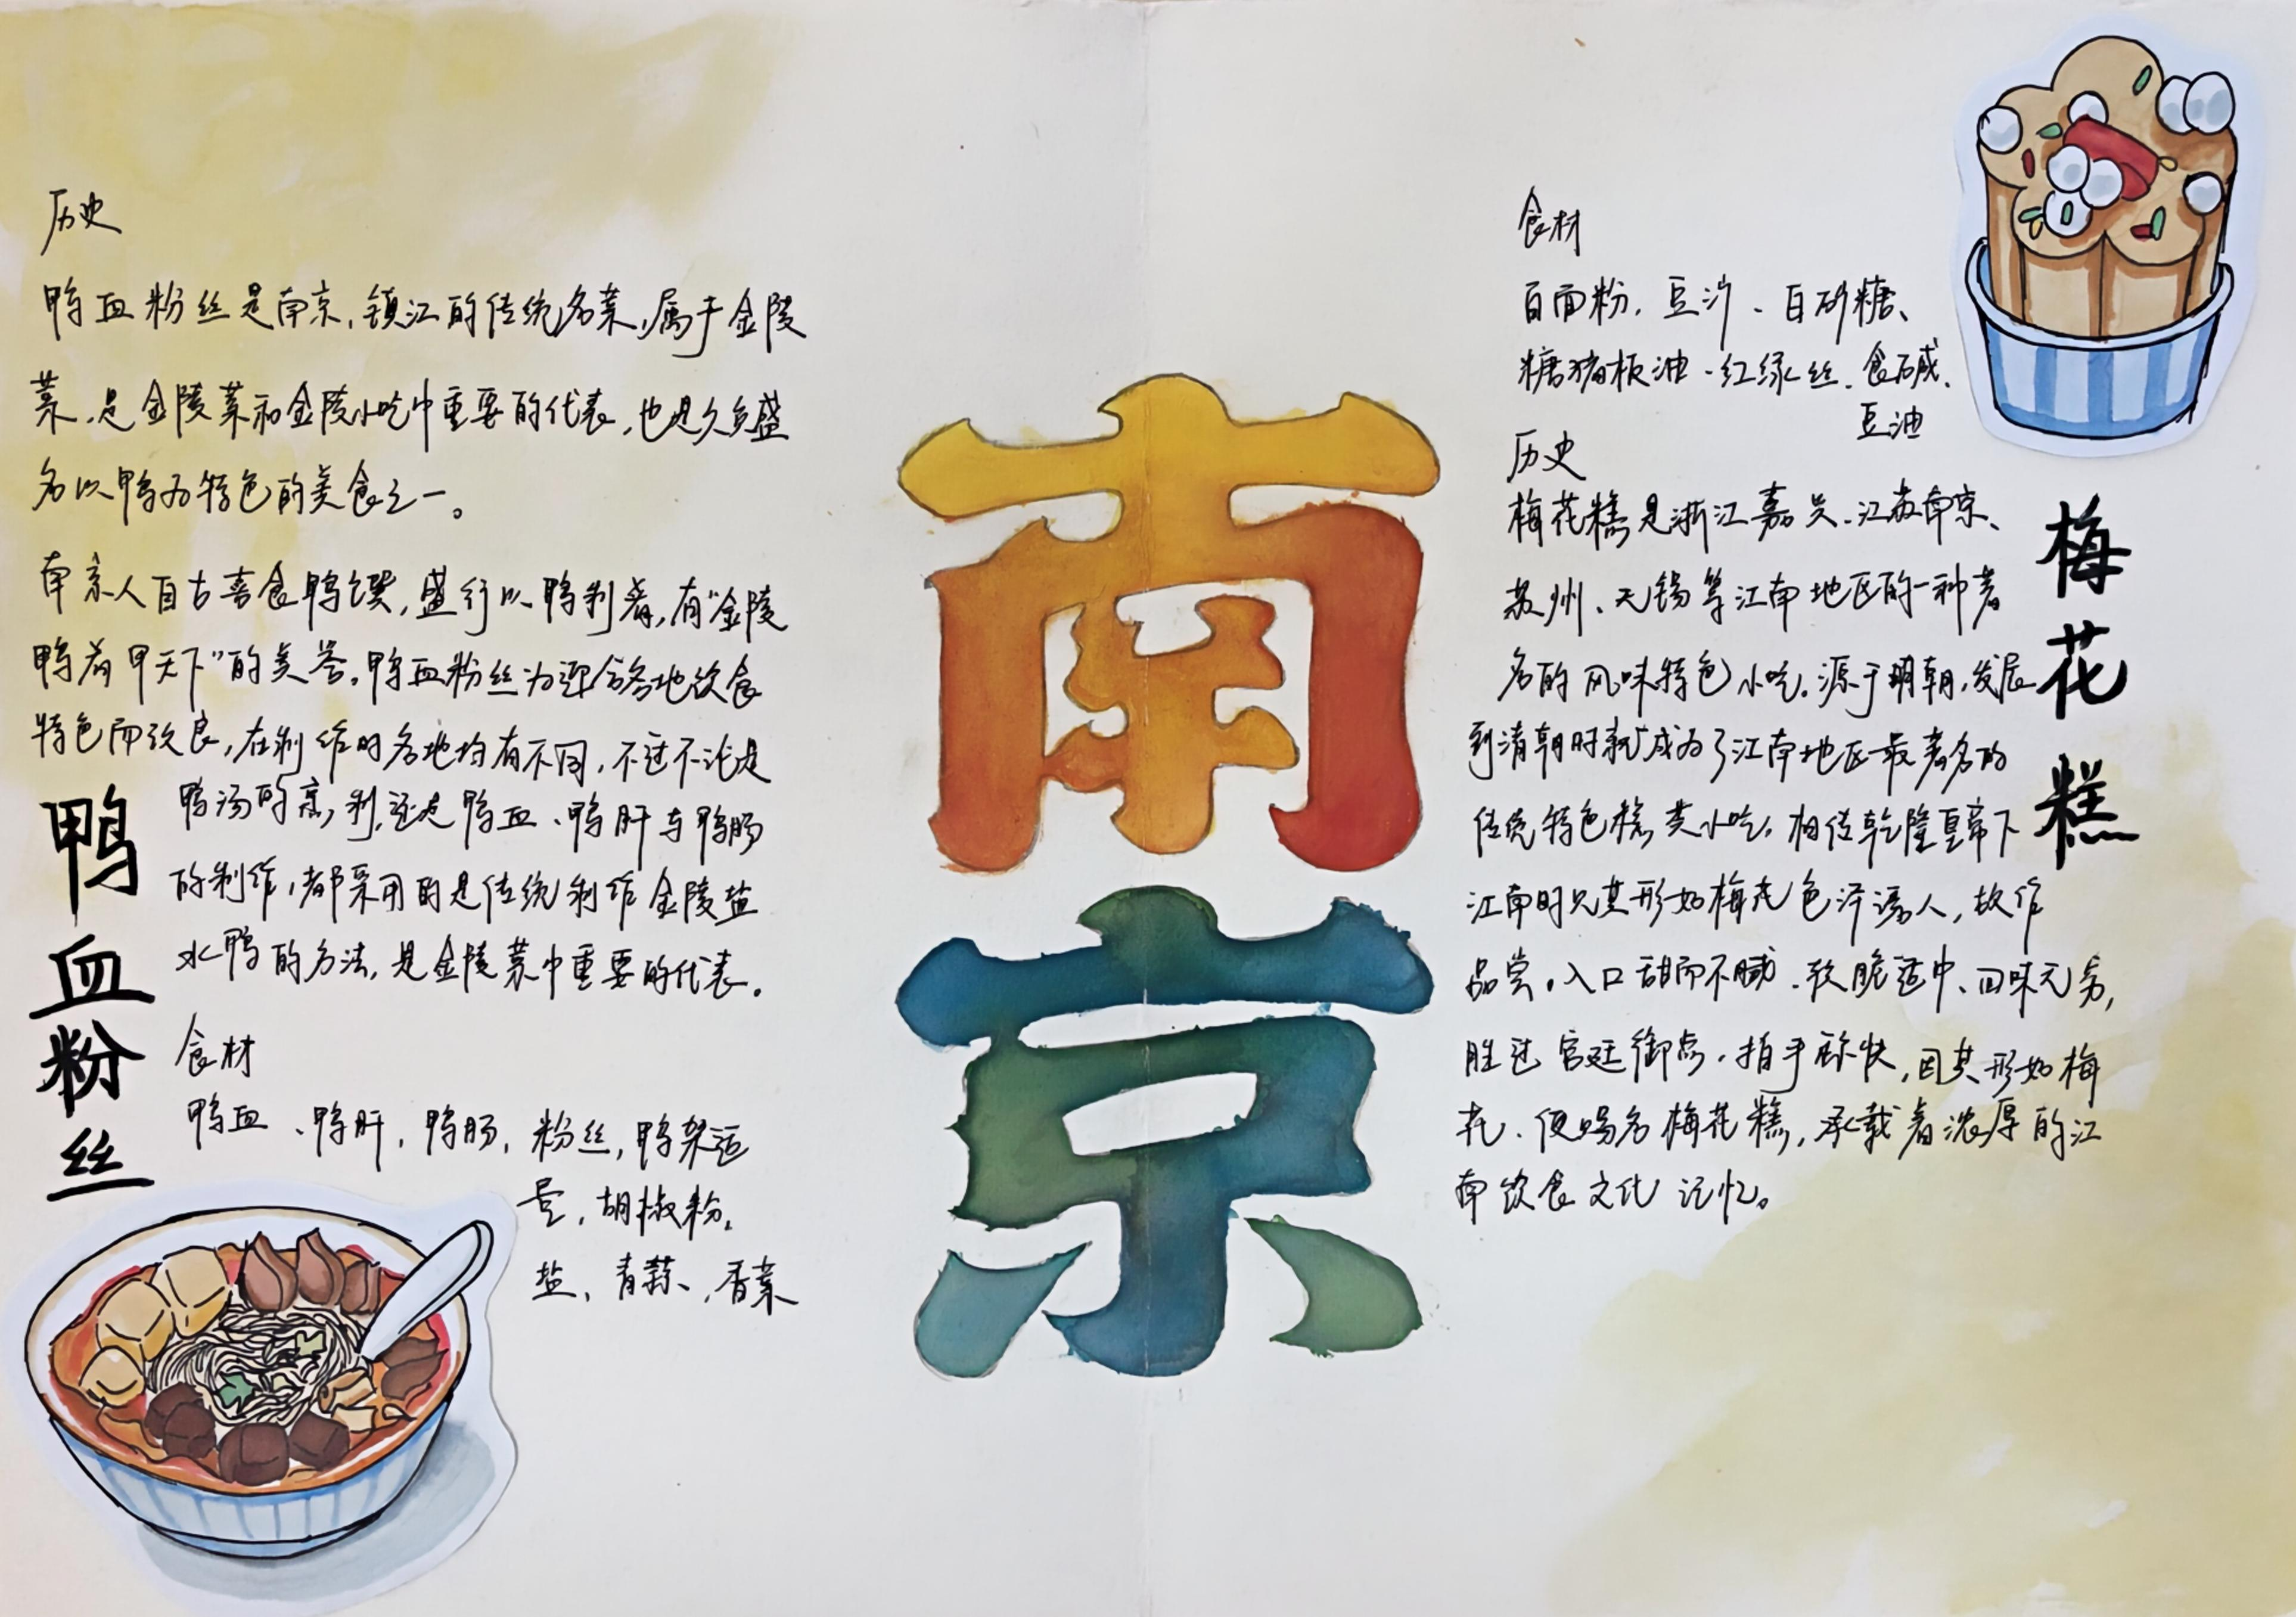 历史
鸭血粉丝是南京,镇江的传统名菜,属于金陵
菜,是金陵菜和金陵小吃中重要的代表,也是久负盛
名以鸭为特色的美食之一。
南京人自古喜食鸭馔,盛行以鸭制肴,有“金陵
鸭肴甲天下”的美誉。鸭血粉丝为迎合各地饮食
特色而改良,在制作时各地均有不同,不过不论是
鸭汤的烹制,还是鸭血、鸭肝与鸭肠
的制作,都采用的是传统制作金陵盐
水鸭的方法,是金陵菜中重要的代表。
鸭血粉丝
食材
鸭血、鸭肝,鸭肠,粉丝,鸭架适
量,胡椒粉,
盐,青蒜、,香菜
南京
食材
白面粉、豆沙、白砂糖、
糖猪板油、红绿丝、食碱、
豆油
历史
梅花糕是浙江嘉兴、江苏南京、
苏州、无锡等江南地区的一种著
名的风味特色小吃。源于明朝,发展
到清朝时就成为了江南地区最著名的
传统特色糕类小吃。相传乾隆皇帝下
江南时见其形如梅花色泽诱人,故作
品尝。入口甜而不腻、软脆适中、回味无穷,
胜过宫廷御点。拍手称快,因其形如梅
花、便赐名梅花糕,承载着浓厚的江
南饮食文化记忆。
梅花糕